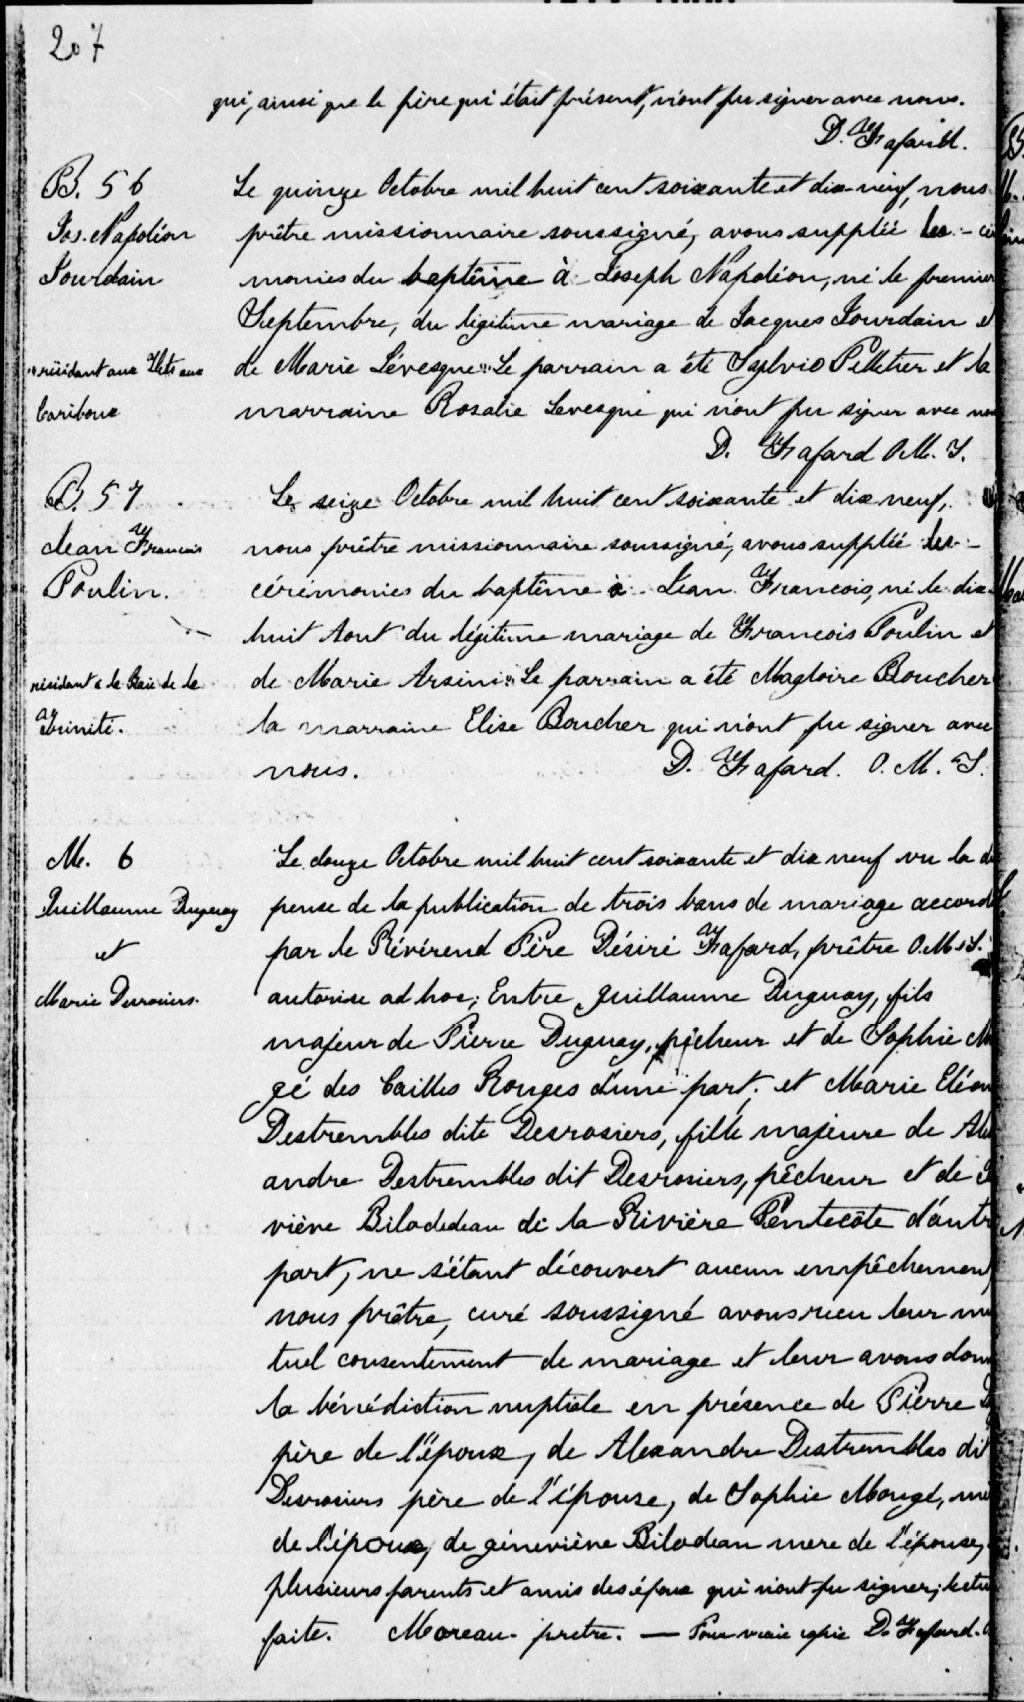 207
qui, ainsi que le père qui était présent, n'ont pu signer avec nous.
D. Fafard.
B. 56
Jos. Napoléon
Jourdain
résidant aux Ilets aux
Caribous
Le quinze Octobre mil huit cent soixante et dix-neuf, nous
prêtre missionnaire soussigné, avons supplée les - cé
monies du baptême à Joseph Napoléon, né le premier
Septembre, du légitime mariage de Jacques Jourdain et
de Marie Lévesque. Le parrain a été Sylvio Pelletier et la
marraine Rosalie Levesque qui n'ont pu signer avec nous
D. Fafard O.M.I.
B. 57
Jean François
Poulin.
résidant à la Baie de la
Trinité.
Le seize Octobre mil huit cent soixante et dix neuf,
nous prêtre missionnaire soussigné, avons supplée les -
cérémonies du baptême à Jean François, né le dix-
huit Aout du légitime mariage de François Poulin et
de Marie Arsine. Le parrain a été Magloire Boucher
la marraine Elise Boucher qui n'ont pu signer avec
nous. D. Fafard. O. M. I.
M. 6
Guillaume Duguay
et
Marie Desrosiers.
Le douze Octobre mil huit cent soixante et dix neuf vu la d
pense de la publication de trois bans de mariage accord
par le Révérend Père Désiré Fafard, prêtre O.M.I.
autorisé ad hoc; Entre Guillaume Duguay, fils
majeur de Pierre Duguay, pêcheur et de Sophie M
gé des Cailles Rouges d'une part; et Marie Eléon
Destrembles dite Desrosiers, fille majeure de Alex
andre Destrembles dit Desrosiers, pêcheur et de G
viève Bilodedeau de la Rivière Pentecôte d'autre
part, ne s'étant découvert aucun empêchement,
nous prêtre, curé soussigné avons recu leur mu
tuel consentement de mariage et leur avons donn
la bénédiction nuptiale en présence de Pierre
père de l'époux, de Alexandre Destrembles dit
Desrosiers père de l'épouse, de Sophie Mongé, m
de l'époux, de géneviève Bilodeau mere de l'épouse,
plusieurs parents et amis des époux qui n'ont pu signer, lectu
faite. Moreau - pretre. — Pour vraie copie D. Fafard.